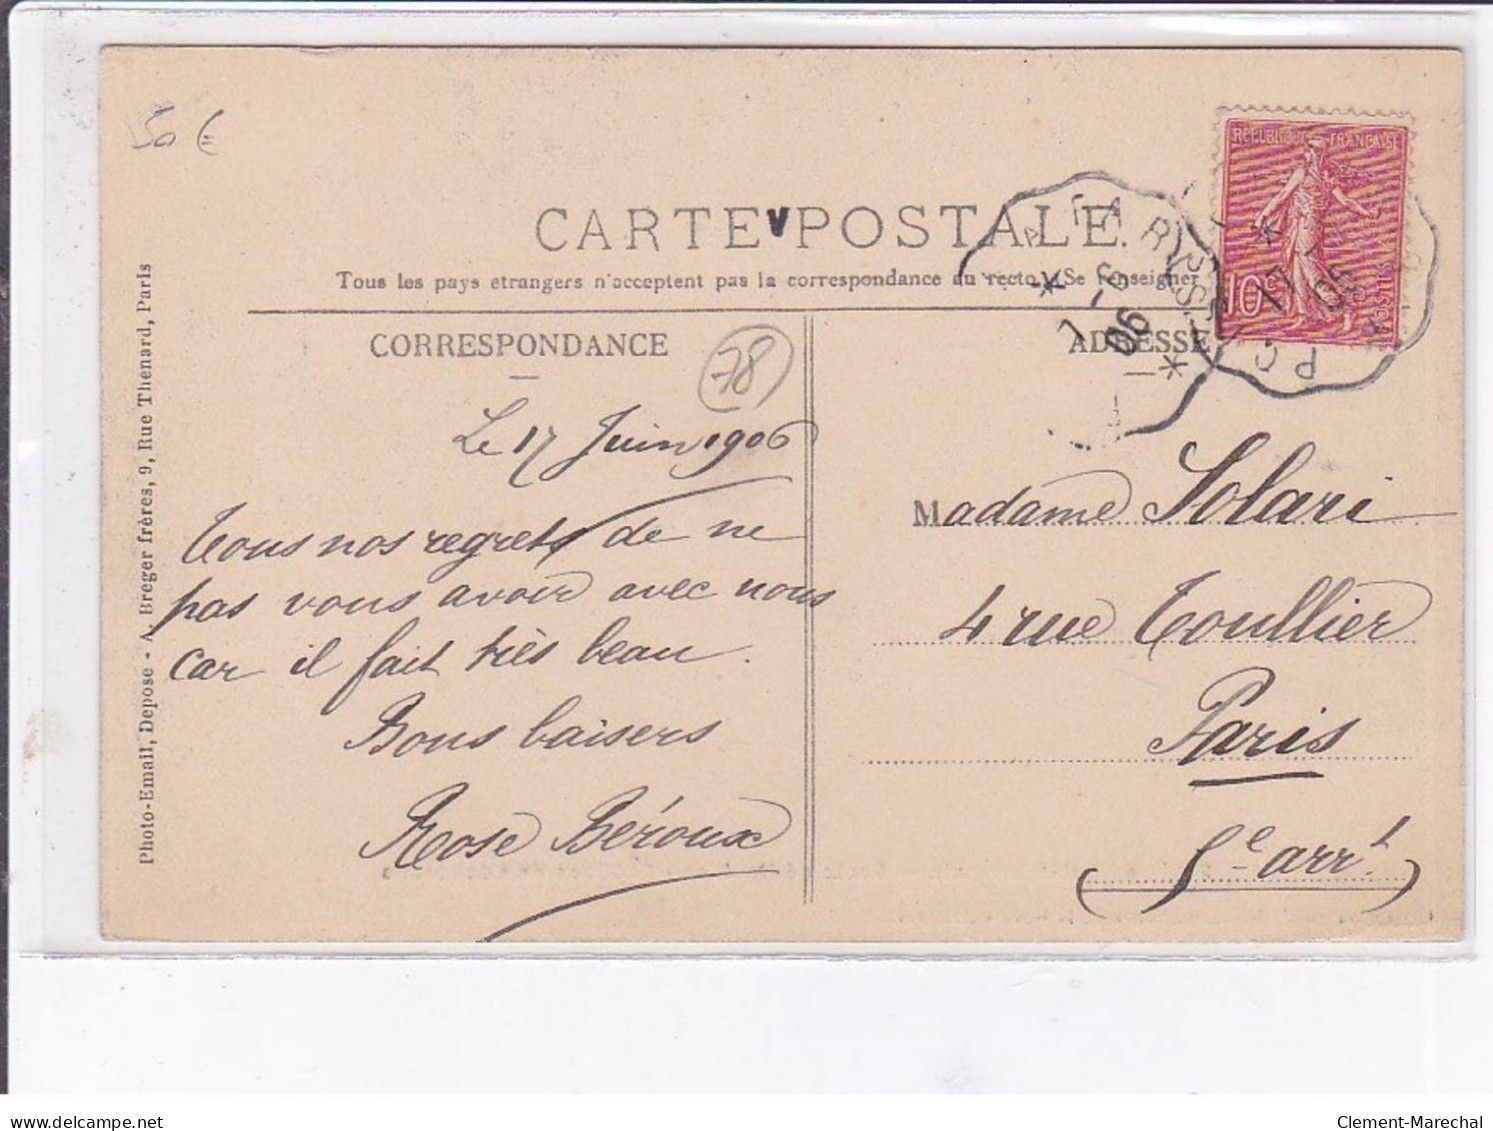 50 €
RÉPUBLIQUE FRANÇAISE
10c
CARTE POSTALE
Tous les pays etrangers n'acceptent pas la correspondance au recto (Se renseigner
CORRESPONDANCE
78
ADRESSE
06
Le 17 Juin 1906
Tous nos regrets de ne
pas vous avoir avec nous
car il fait très beau.
Bons baisers
Rose Béroux
Madame Solari
4 rue Toullier
Paris
(5e arrt)
Photo-Email, Depose - A. Breger frères, 9, Rue Thenard, Paris
delcampe.net
Clement-Marechal